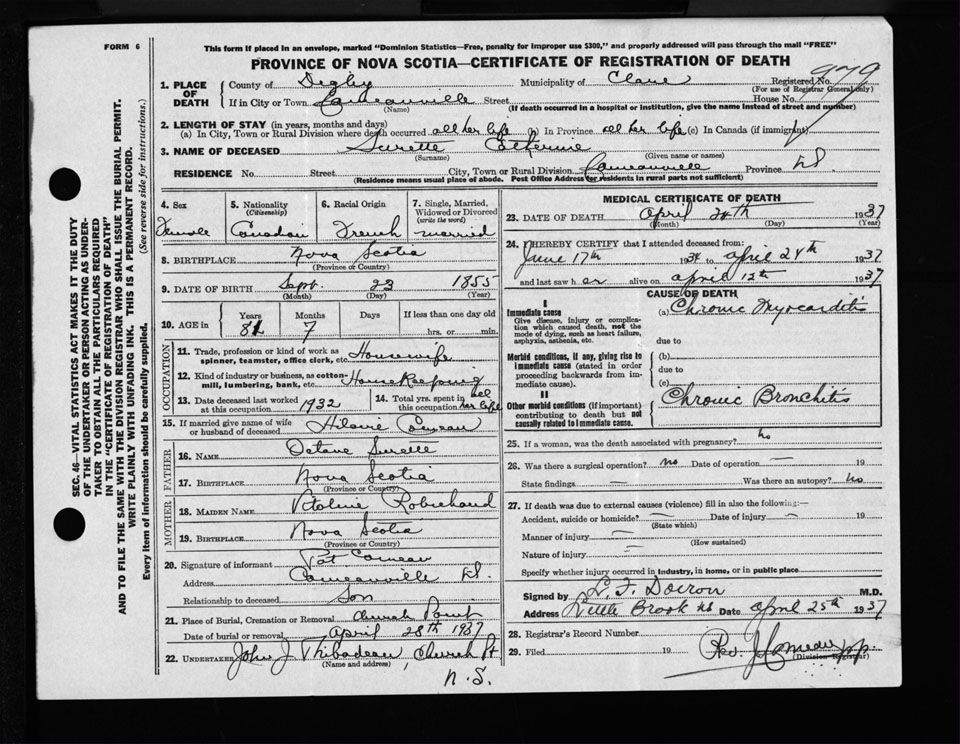 FORM 6
This form if placed in an envelope, marked "Dominion Statistics—Free, penalty for improper use $300," and properly addressed will pass through the mail "FREE"
PROVINCE OF NOVA SCOTIA—CERTIFICATE OF REGISTRATION OF DEATH
1. PLACE OF DEATH
County of Digby Municipality of Clare Registered No. 979
(For use of Registrar General only)
If in City or Town Comeauville Street House No.
(Name) (If death occurred in a hospital or institution, give the name instead of street and number)
2. LENGTH OF STAY (in years, months and days)
(a) In City, Town or Rural Division where death occurred all her life (b) In Province all her life (c) In Canada (if immigrant)
3. NAME OF DECEASED Surette Catherine
(Surname) (Given name or names)
RESIDENCE No. Street City, Town or Rural Division Comeauville Province N.S.
(Residence means usual place of abode. Post Office Address for residents in rural parts not sufficient)
4. Sex Female
5. Nationality (Citizenship) Canadian
6. Racial Origin French
7. Single, Married, Widowed or Divorced (write the word) married
8. BIRTHPLACE Nova Scotia
(Province or Country)
9. DATE OF BIRTH Sept. 23 1855
(Month) (Day) (Year)
10. AGE in Years Months Days If less than one day old
81 7 hrs. or min.
OCCUPATION
11. Trade, profession or kind of work as spinner, teamster, office clerk, etc. Housewife
12. Kind of industry or business, as cotton-mill, lumbering, bank, etc. House Keeping
13. Date deceased last worked at this occupation 1932
14. Total yrs. spent in this occupation all her life
15. If married give name of wife or husband of deceased Hilaire Comeau
FATHER
16. NAME Octave Surette
17. BIRTHPLACE Nova Scotia
(Province or Country)
MOTHER
18. MAIDEN NAME Robichaud
19. BIRTHPLACE Nova Scotia
(Province or Country)
20. Signature of informant Pat Comeau
Address Comeauville N.S.
Relationship to deceased Son
21. Place of Burial, Cremation or Removal Church Point
Date of burial or removal April 28th 1937
22. UNDERTAKER John J Thibodeau, Church Pt
(Name and address)
N.S.
MEDICAL CERTIFICATE OF DEATH
23. DATE OF DEATH April 24th 1937
(Month) (Day) (Year)
24. I HEREBY CERTIFY that I attended deceased from:
June 17th 1934 to April 24th 1937
and last saw her alive on April 12th 1937
CAUSE OF DEATH
I
Immediate cause
Give disease, injury or complication which caused death, not the mode of dying, such as heart failure, asphyxia, asthenia, etc.
(a) Chronic Myocarditis
due to
Morbid conditions, if any, giving rise to immediate cause (stated in order proceeding backwards from immediate cause).
(b)
due to
(c)
II
Other morbid conditions (if important) contributing to death but not causally related to immediate cause.
Chronic Bronchitis
25. If a woman, was the death associated with pregnancy? No
26. Was there a surgical operation? no Date of operation — 19
State findings — Was there an autopsy? No
27. If death was due to external causes (violence) fill in also the following:—
Accident, suicide or homicide? — Date of injury — 19
(State which)
Manner of injury —
(How sustained)
Nature of injury —
Specify whether injury occurred in industry, in home, or in public place
Signed by L. F. Doiron M.D.
Address Little Brook NS Date April 25th 1937
28. Registrar's Record Number
29. Filed 19 Rev. J Comeau
(Division Registrar)
SEC. 46—VITAL STATISTICS ACT MAKES IT THE DUTY
OF THE UNDERTAKER OR PERSON ACTING AS UNDER-
TAKER TO OBTAIN ALL THE PARTICULARS REQUIRED
IN THE "CERTIFICATE OF REGISTRATION OF DEATH"
AND TO FILE THE SAME WITH THE DIVISION REGISTRAR WHO SHALL ISSUE THE BURIAL PERMIT.
WRITE PLAINLY WITH UNFADING INK. THIS IS A PERMANENT RECORD.
Every item of information should be carefully supplied. (See reverse side for instructions.)